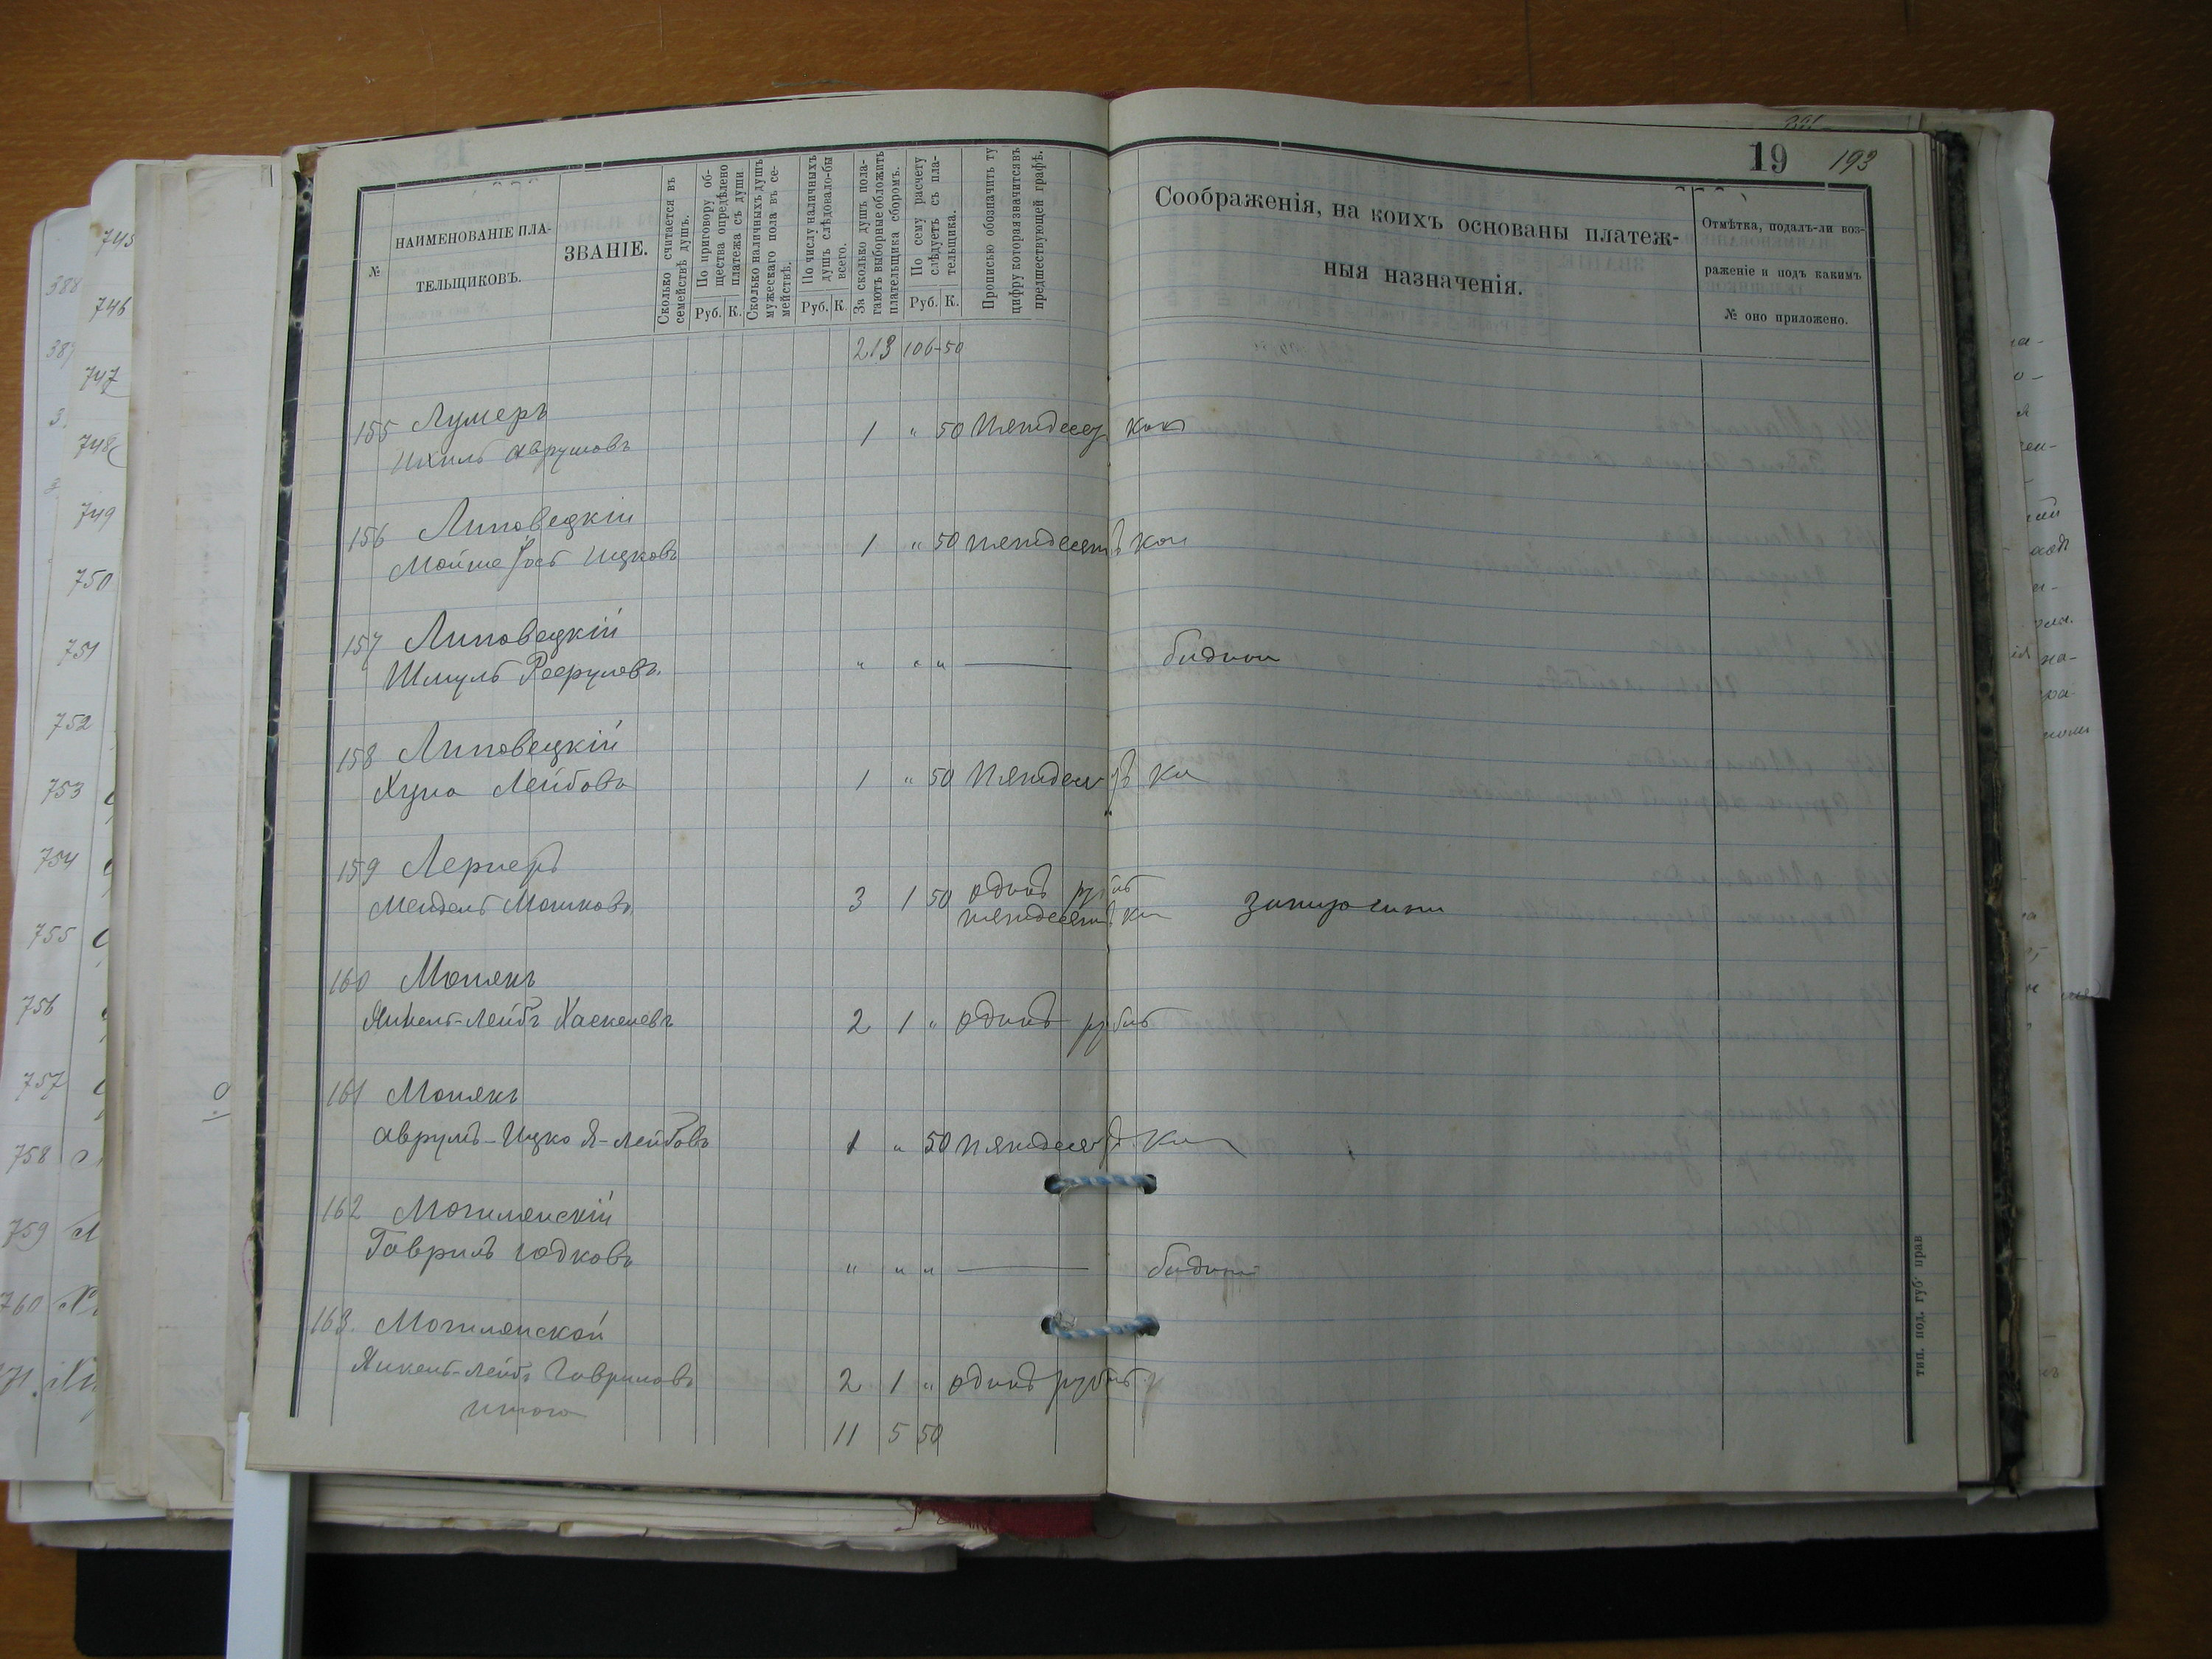 19 193
№
НАИМЕНОВАНІЕ ПЛА-
ТЕЛЬЩИКОВЪ.
ЗВАНІЕ.
Сколько считается въ
семействѣ душъ.
По приговору об-
щества опредѣлено
платежа съ души.
Руб. К.
Сколько наличныхъ душъ
мужескаго пола въ се-
мействѣ.
По числу наличныхъ
душъ слѣдовало-бы
всего.
Руб. К.
За сколько душъ пола-
гаютъ выборные обложить
плательщика сборомъ.
По сему расчету
слѣдуетъ съ пла-
тельщика.
Руб. К.
Прописью обозначить ту
цифру которая значится въ
предшествующей графѣ.
Соображенія, на коихъ основаны платеж-
ныя назначенія.
Отмѣтка, подалъ-ли воз-
раженіе и подъ какимъ
№ оно приложено.
213 106-50
155 Лумеръ
Ихиль Аврумовъ 1 " 50
156 Липовецкій
Мойше Іось Ицковъ 1 " 50 пятдесятъ коп
157 Липовецкій
Шмуль " " " бидной
158 Липовецкій
Хуна Лейбовъ 1 " 50
159 Лернеръ
Мендель Мошковъ 3 1 50 одинъ рубль
пятдесятъ
160
Янкель-Лейбъ Хаскелевъ 2 1 " одинъ рубль
161
Аврумъ-Ицко Я-Лейбовъ 1 " 50
162 Могилянскій
Гаврилъ Юдковъ " " " бидный
163. Могилянской
Янкель-Лейбъ Гавриловъ 2 1 " одинъ рубль
итого
11 5 50
тип. под. губ. прав
745
746
747
748
749
750
751
752
753
754
755
756
757
758
759
760